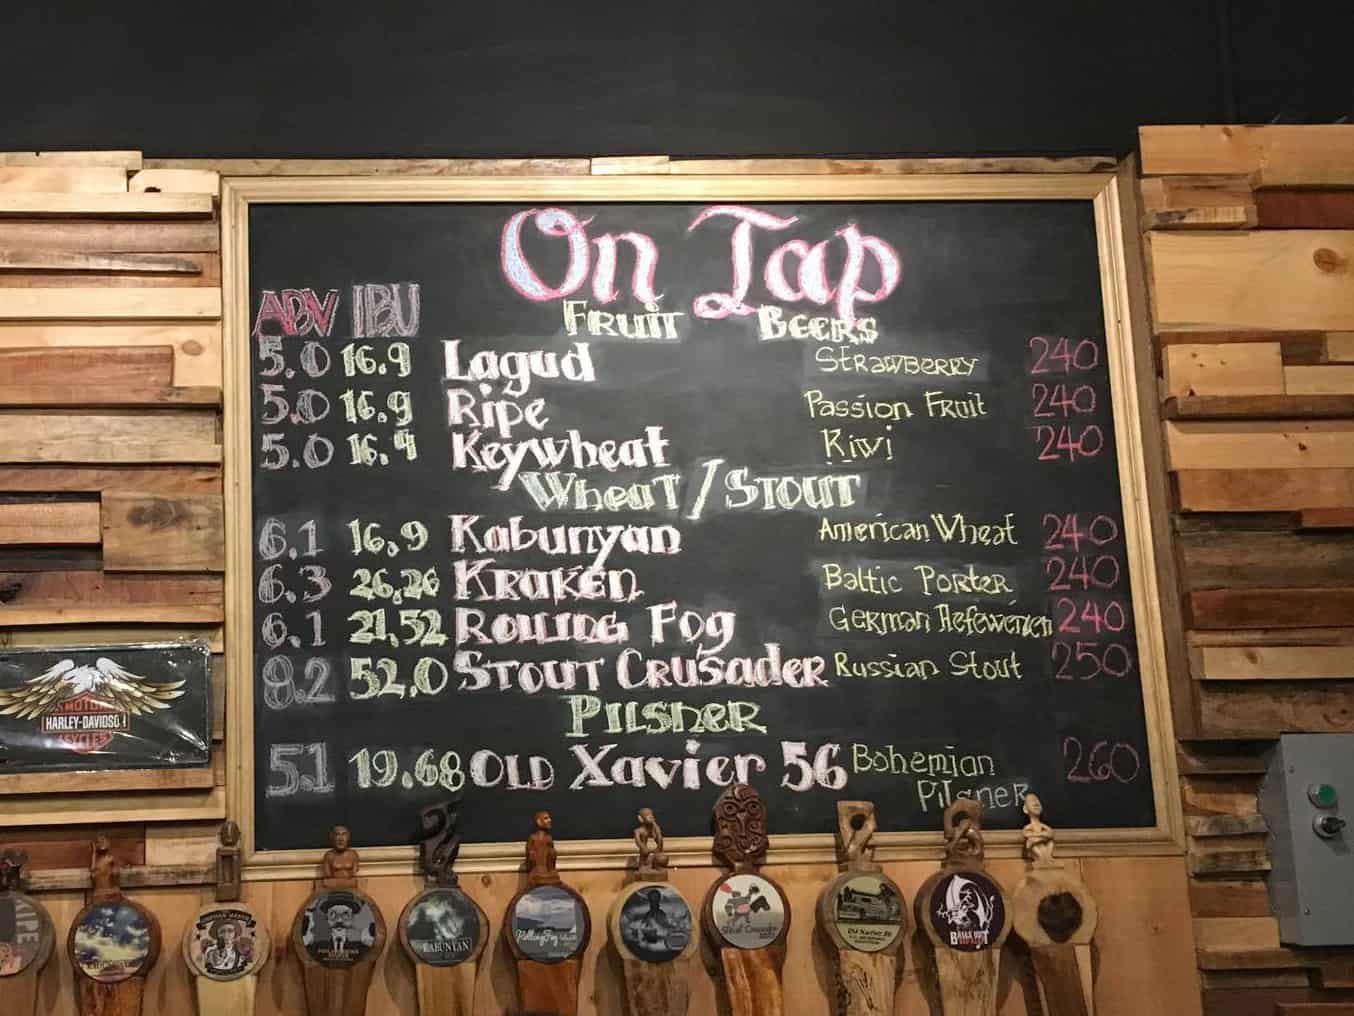 On Tap
ABV IBU Fruit Beers
5.0 16.9 Lagud Strawberry 240
5.0 16.9 Ripe Passion Fruit 240
5.0 16.9 Keywheat Kiwi 240
Wheat / Stout
6.1 16.9 Kabunyan American Wheat 240
6.3 26,26 Kraken Baltic Porter 240
6.1 21,52 Rolling Fog German Hefeweizen 240
8.2 52,0 Stout Crusader Russian Stout 250
Pilsner
5.1 19.68 Old Xavier 56 Bohemian 260
Pilsner
MOTOR
HARLEY-DAVIDSON
CYCLES
KABUNYAN
Rolling Fog
Stout Crusader
Old Xavier 56